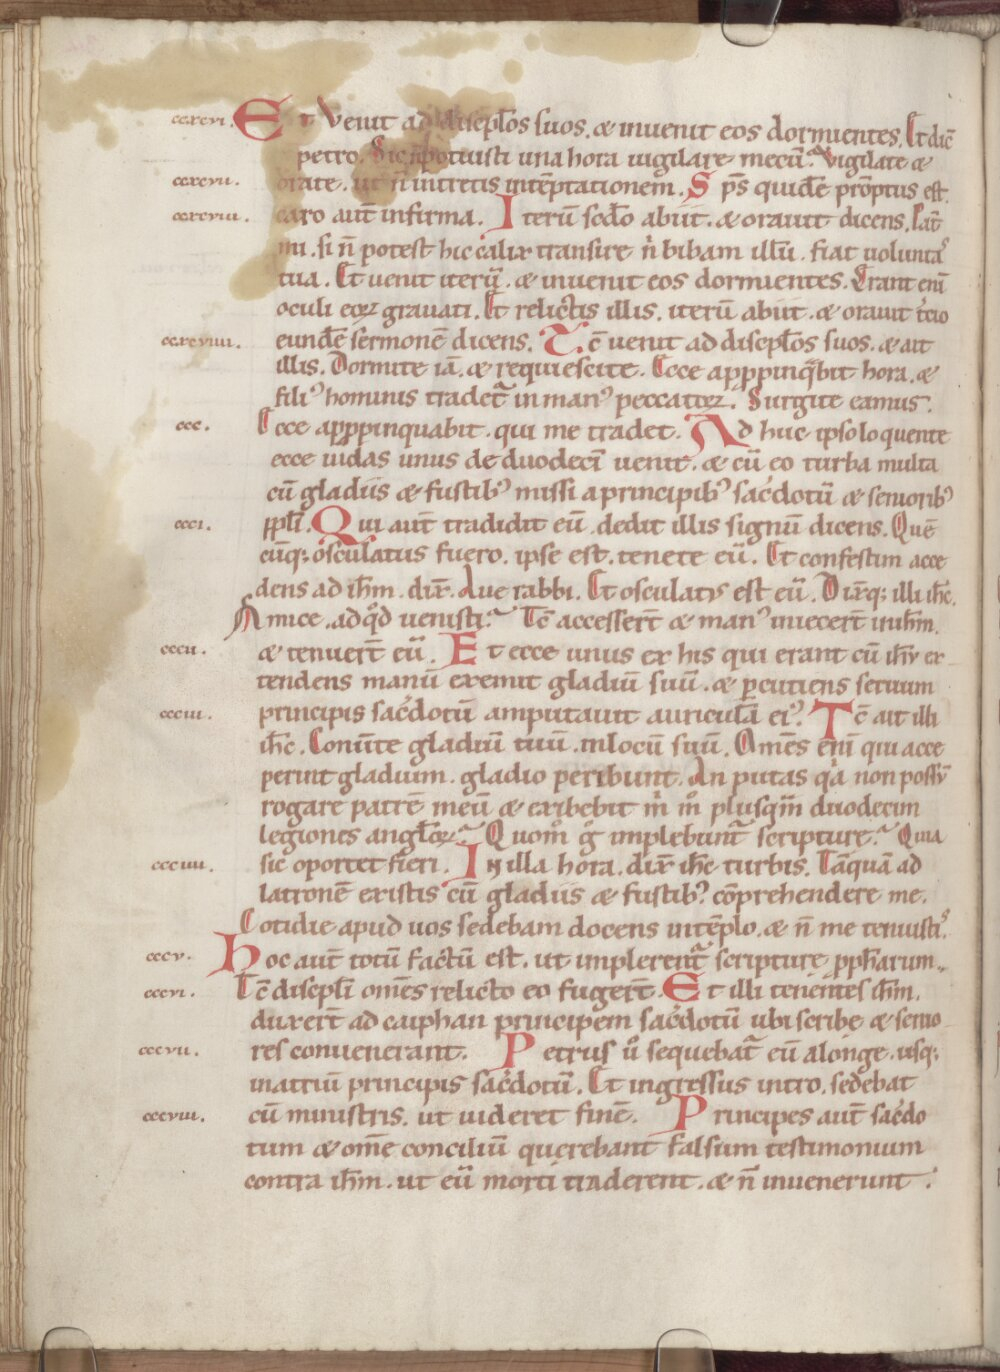 ccxcvi. Et Venit ad discipl̅os suos. & inuenit eos dormientes. Et dic̅
petro. Sic n̅ potuisti una hora uigilare mecu̅? Vigilate &
ccxcvii. orate. ut n̅ intretis inte̅ptationem. Sp̅s quide̅ pro̅ptus est.
ccxcviii. caro aut̅ infirma. Iteru̅ scd̅o abiit. & orauit dicens. Pat̅
mi. si n̅ potest hic calix transire n̅ bibam illu̅. fiat uolunta꯰
tua. Et uenit iteru̅. & inuenit eos dormientes. Erant eni̅
oculi eoꝝ grauati. Et relictis illis. iteru̅ abiit. & orauit t̅cio
ccxcviiii. eunde̅ sermone̅ dicens. Tc̅ uenit ad discipl̅os suos. & ait
illis. Dormite ia̅. & requiescite. Ecce appꝓpinq̅bit hora. &
fili꯰ hominis tradet̅ in man꯰ peccatoꝝ. Surgite eamus.
ccc. Ecce appꝓpinquabit. qui me tradet. Ad huc ipso loquente
ecce iudas unus de duodeci̅ uenit. & cu̅ eo turba multa
cu̅ gladiis & fustib꯰ missi a principib꯰ sac̅dotu̅ & seniorib꯰
ccci. ppl̅i. Qui aut̅ tradidit eu̅. dedit illis signu̅ dicens. Que̅
cu̅q; osculatus fuero. ipse est. tenete eu̅. Et confestim acce
dens ad ih̅m. dix̅. Aue rabbi. Et osculat꯰ est eu̅. Dixq; illi ih̅c.
Amice. ad q̊d uenisti? Tc̅ accessert̅ & man꯰ iniecert̅ in ih̅m.
cccii. & tenuert̅ eu̅. Et ecce unus ex his qui erant cu̅ ih̅u ex
tendens manu̅ exemit gladiu̅ suu̅. & ꝑcutiens seruum
ccciii. principis sac̅dotu̅ amputauit auricula̅ ei꯰. Tc̅ ait illi
ih̅c. Conu̅te gladiu̅ tuu̅. in locu̅ suu̅. Om̅es eni̅ qui acce
perint gladium. gladio peribunt. An putas q̅a non possu̅
rogare patre̅ meu̅ & exibebit m̅ m̊ plusqua̅ duodecim
legiones angl̅oꝝ? Quom̊ g̊ implebunt̅ scripture? Quia
ccciiii. sic oportet fieri. In illa hora. dix̅ ih̅c turbis. Ta̅qua̅ ad
latrone̅ existis cu̅ gladiis & fustib꯰ co̅prehendere me.
Cotidie apud uos sedebam docens in te̅plo. & n̅ me tenuisti꯰.
cccv. Hoc aut̅ totu̅ factu̅ est. ut implerent̅ scripture ꝓph̅arum.
cccvi. Tc̅ discipl̅i om̅es relicto eo fugert̅. Et illi tenentes ih̅m.
duxert̅ ad caiphan principem sac̅dotu̅ ubi scribe & senio
cccvii. res conuenerant. Petrus u̅ sequebat̅ eu̅ a longe. usq;
in atriu̅ principis sac̅dotu̅. Et ingressus intro. sedebat
cccviii. cu̅ ministris. ut uideret fine̅. Principes aut̅ sac̅do
tum & om̅e conciliu̅ querebant falsum testimonium
contra ih̅m. ut eu̅ morti traderent. & n̅ inuenerunt.